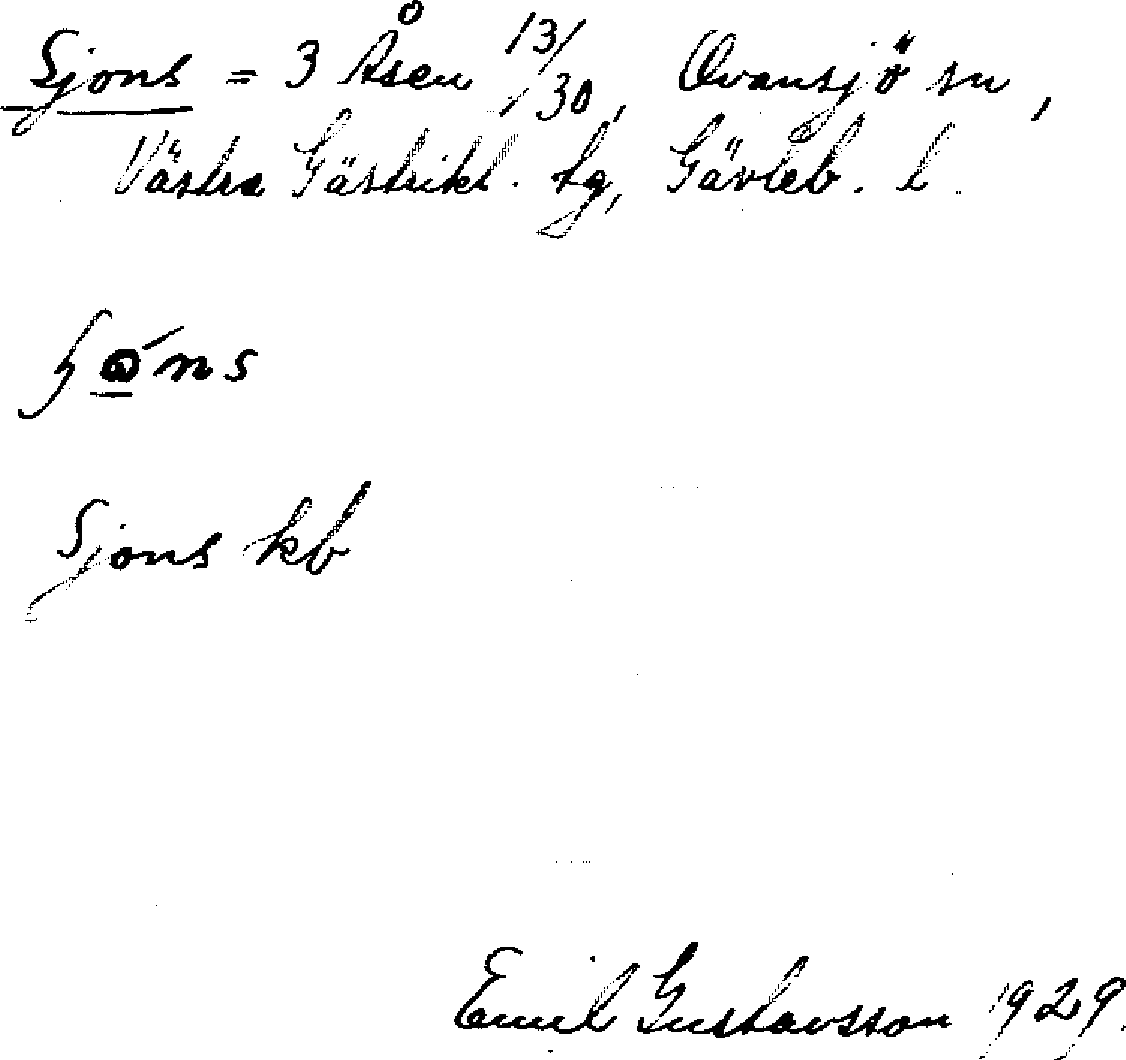 Sjons = 3 Åsen 13/30, Ovansjö sn,
Västra Gästrikl. tg, Gävleb. l.
Sjons kb
Emil Gustavsson 1929.